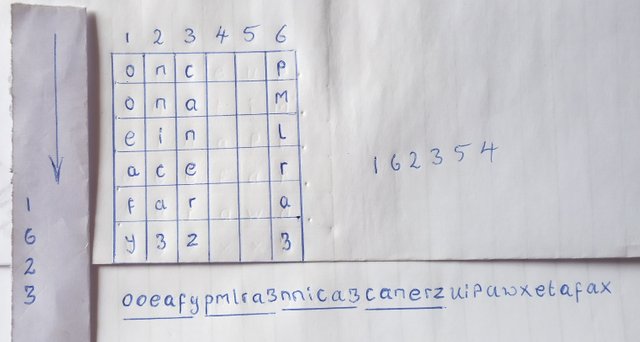 1 2 3 4 5 6
o n c p
o n a M
e i n L
a c e r
f a r a
y 3 z 3
1
6
2
3
1 6 2 3 5 4
ooeafypmlra3nnica3canerzuipawxetafax